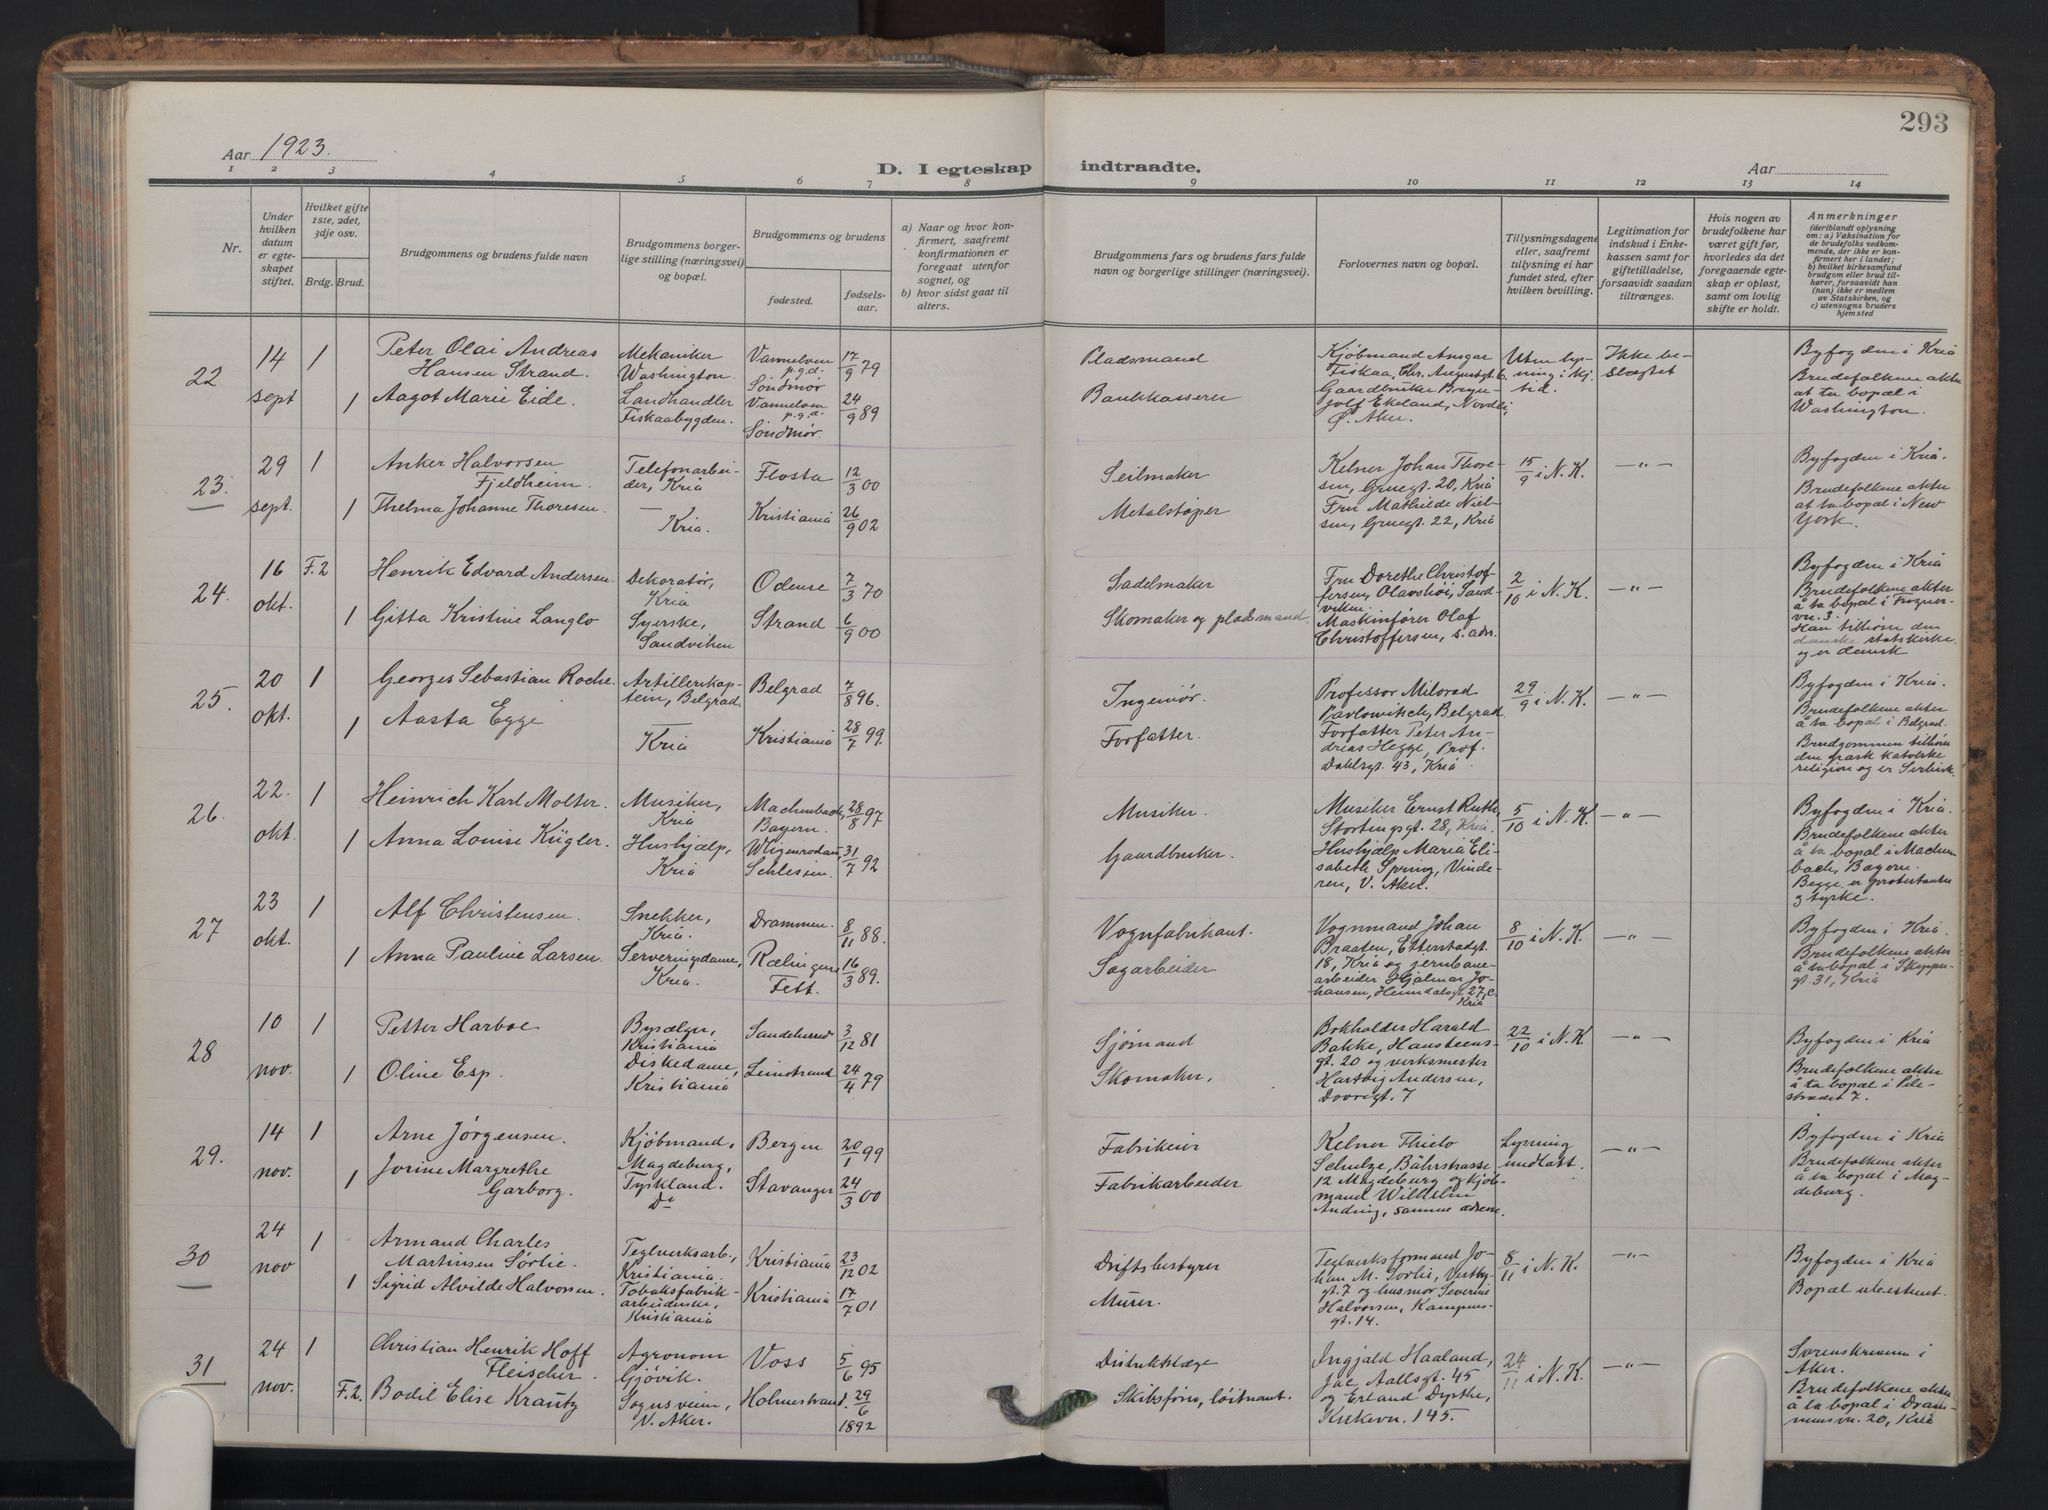 293
Aar 1923.
D. I egteskap indtraadte.
Aar
1 2 3 4 5 6 7 8 9 10 11 12 13 14
Nr.
Under hvilken datum er egteskapet stiftet.
Hvilket gifte 1ste, 2det, 3dje osv.
Brdg. Brud.
Brudgommens og brudens fulde navn
Brudgommens borgerlige stilling (næringsvei) og bopæl.
Brudgommens og brudens
fødested.
fødselsaar.
a) Naar og hvor konfirmert, saafremt konfirmationen er foregaat utenfor sognet, og
b) hvor sidst gaat til alters.
Brudgommens fars og brudens fars fulde navn og borgerlige stillinger (næringsvei).
Forlovernes navn og bopæl.
Tillysningsdagene eller, saafremt tillysning ei har fundet sted, efter hvilken bevilling.
Legitimation for indskud i Enkekassen samt for giftetilladelse, forsaavidt saadan tiltrænges.
Hvis nogen av brudefolkene har været gift før, hvorledes da det foregaaende egteskap er opløst, samt om lovlig skifte er holdt.
Anmerkninger
(deriblandt oplysning om: a) Vaksination for de brudefolks vedkommende, der ikke er konfirmert her i landet; b) hvilket kirkesamfund brudgom eller brud tilhører, forsaavidt han (hun) ikke er medlem av Statskirken, og c) utensogns bruders hjemsted
22
14 sept
1
Peter Olai Andreas
Hansen Strand.
Mekaniker
Washington.
Vannelven p.g.d.
Söndmör
17/9 79
1
Aagot Marie Eide.
Landhandler
Fiskaabygden.
Vannelven p.g.d.
Söndmör.
24/9 89
Pladsmand
Bankkasserer
Kjøbmand Ansgar
Fiskaa, Chr. Augustsgt 6.
Gaardbruker
Ekeland,
Ø. Aker.
Uten lysning i kj. tid.
Ikke beslægtet
Byfogden i Kria
Brudefolkene akter
at ta bopæl i
Washington.
23.
29 sept.
1
Anker Halvorsen
Fjeldheim.
Telefonarbeider, Kria
Flosta
12/3 00
1
Thelma Johanne Thoresen.
—
Kria.
Kristiania
26/9 02
Seilmaker
Metalstøper
Kelner Johan Thoresen, Gruegt. 20, Kria
Fru Mathilde Nielsen, Gruegt. 22, Kria
15/9 i N. K.
—"—
Byfogden i Kria.
Brudefolkene akter
at ta bopæl i New
York.
24.
16 okt.
F. 2
Henrik Edvard Andersen
Dekoratør,
Kria
Odense
7/3 70
1
Gitta Kristine Langlo
Syerske,
Sandviken
Strand
6/9 00
Sadelmaker
Skomaker og pladsmand.
Fru Dorethe Christoffersen, Olavshöi, Sandviken
Maskinfører Olaf
Christoffersen, s. adr.
2/10 i N. K.
—"—
Byfogden i Kria
Brudefolkene akter
å ta bopæl i Frognervn. 3.
Han tilhører den
danske statskirke
og er dansk
25.
20 okt
1
Georges Sebastian Roche.
Artillerikaptein, Belgrad
Belgrad
7/8 96.
1
Aasta Egge
—
Kria
Kristiania
28/7 99.
Ingeniør.
Forfatter.
Professor Milorad
Pavlowitsch, Belgrad
Forfatter Peter Andreas Hegge, Prof.
Dahlsgt. 43, Kria.
29/9 i N. K
—"—
Byfogden i Kria.
Brudefolkene akter
å ta bopæl i Belgrad.
Brudgommen tilhører
den græsk katolske
religion og er Serbisk.
26.
22. okt
1
Heinrich Karl Molter.
Musiker,
Kria
Machenbach,
Bayern.
28/8 97
1
Anna Louise Kügler.
Hushjælp,
Kria
Schlesien.
31/7 92
Musiker.
Gaardbruker.
Musiker Ernst Ruth,
Stortingsgt. 28, Kria.
Hushjælp Maria Elisabeth Spring, Vinderen, V. Aker.
5/10 i N. K.
—"—
Byfogden i Kria.
Brudefolkene akter
å ta bopæl i Machenbach, Bayern.
Begge er protestanter
og tyske.
27
23 okt.
1
Alf Christensen.
Snekker,
Kria.
Drammen.
8/11 88.
1
Anna Pauline Larsen.
Serveringsdame,
Kria.
Rælingen,
Fett.
16/3 89.
Vognfabrikant.
Sagarbeider
Vognmand Johan
Braaten, Etterstadgt.
18, Kria og jernbanearbeider Hjalmar Johansen, Heimdalsgt. 27, c.
Kria
8/10 i N. K
—"—
Byfogden i Kria.
Brudefolkene akter
å ta bopæl i Skippergt. 31, Kria
28
10 nov.
1
Petter Harboe
Bysælger,
Kristiania
Sandeherred
3/12 81
1
Oline Esp.
Diskedame,
Kristiania
Leinstrand
24/4 79
Sjømand
Skomaker.
Bokholder Harald
Bakke, Hansteensgt. 20 og verksmester
Hartvig Andersen,
Dovregt. 7
22/10 i N. K
—"—
Byfogden i Kria
Brudefolkene akter
å ta bopæl i Pilestrædet 7.
29.
14 nov.
1
Arne Jørgensen.
Kjøbmand,
Magdeburg,
Tyskland.
Bergen
20/1 99
1
Jorine Margrethe
Garborg.
Do
Stavanger
24/3 00
Fabrikeier
Fabrikarbeider
Kelner Thielo
Schulze, Bährstrasse
12 Magdeburg og kjøbmand Wilhelm
Anding, samme adresse.
Lysning undlatt.
—"—
Byfogden i Kria
Brudefolkene akter
å ta bopæl i Magdeburg.
30
24 nov
1
Armand Charles
Martinsen Sørlie.
Teglverksarb.,
Kristiania.
Kristiania
23/12 02
1
Sigrid Alvilde Halvorsen.
Tobaksfabrikarbeiderske,
Kristiania
Kristiania
17/7 01
Driftsbestyrer
Murer.
Teglverksformand Johan M. Sørlie, Vestbygt. 7 og husmor Severine
Halvorsen, Kampensgt. 14.
8/11 i N. K.
—"—
Byfogden i Kria
Bopæl ubestemt.
31
24 nov.
1
Christian Henrik Hoff
Fleischer.
Agronom
Gjøvik.
Voss
5/6 95
F. 2.
Bodil Elise Krautz
Sognsveien,
V. Aker.
Holmestrand.
29/6 1892
Distriktslæge
Skibsfører, løitnant.
Ingjald Haaland,
Jac Aallsgt. 45
og Erland Dysthe,
Kirkevn. 145.
24/11 i N. K.
—"—
Sorenskriveren i
Aker.
Brudefolkene akter
å ta bopæl i Drammensvn. 20, Kria